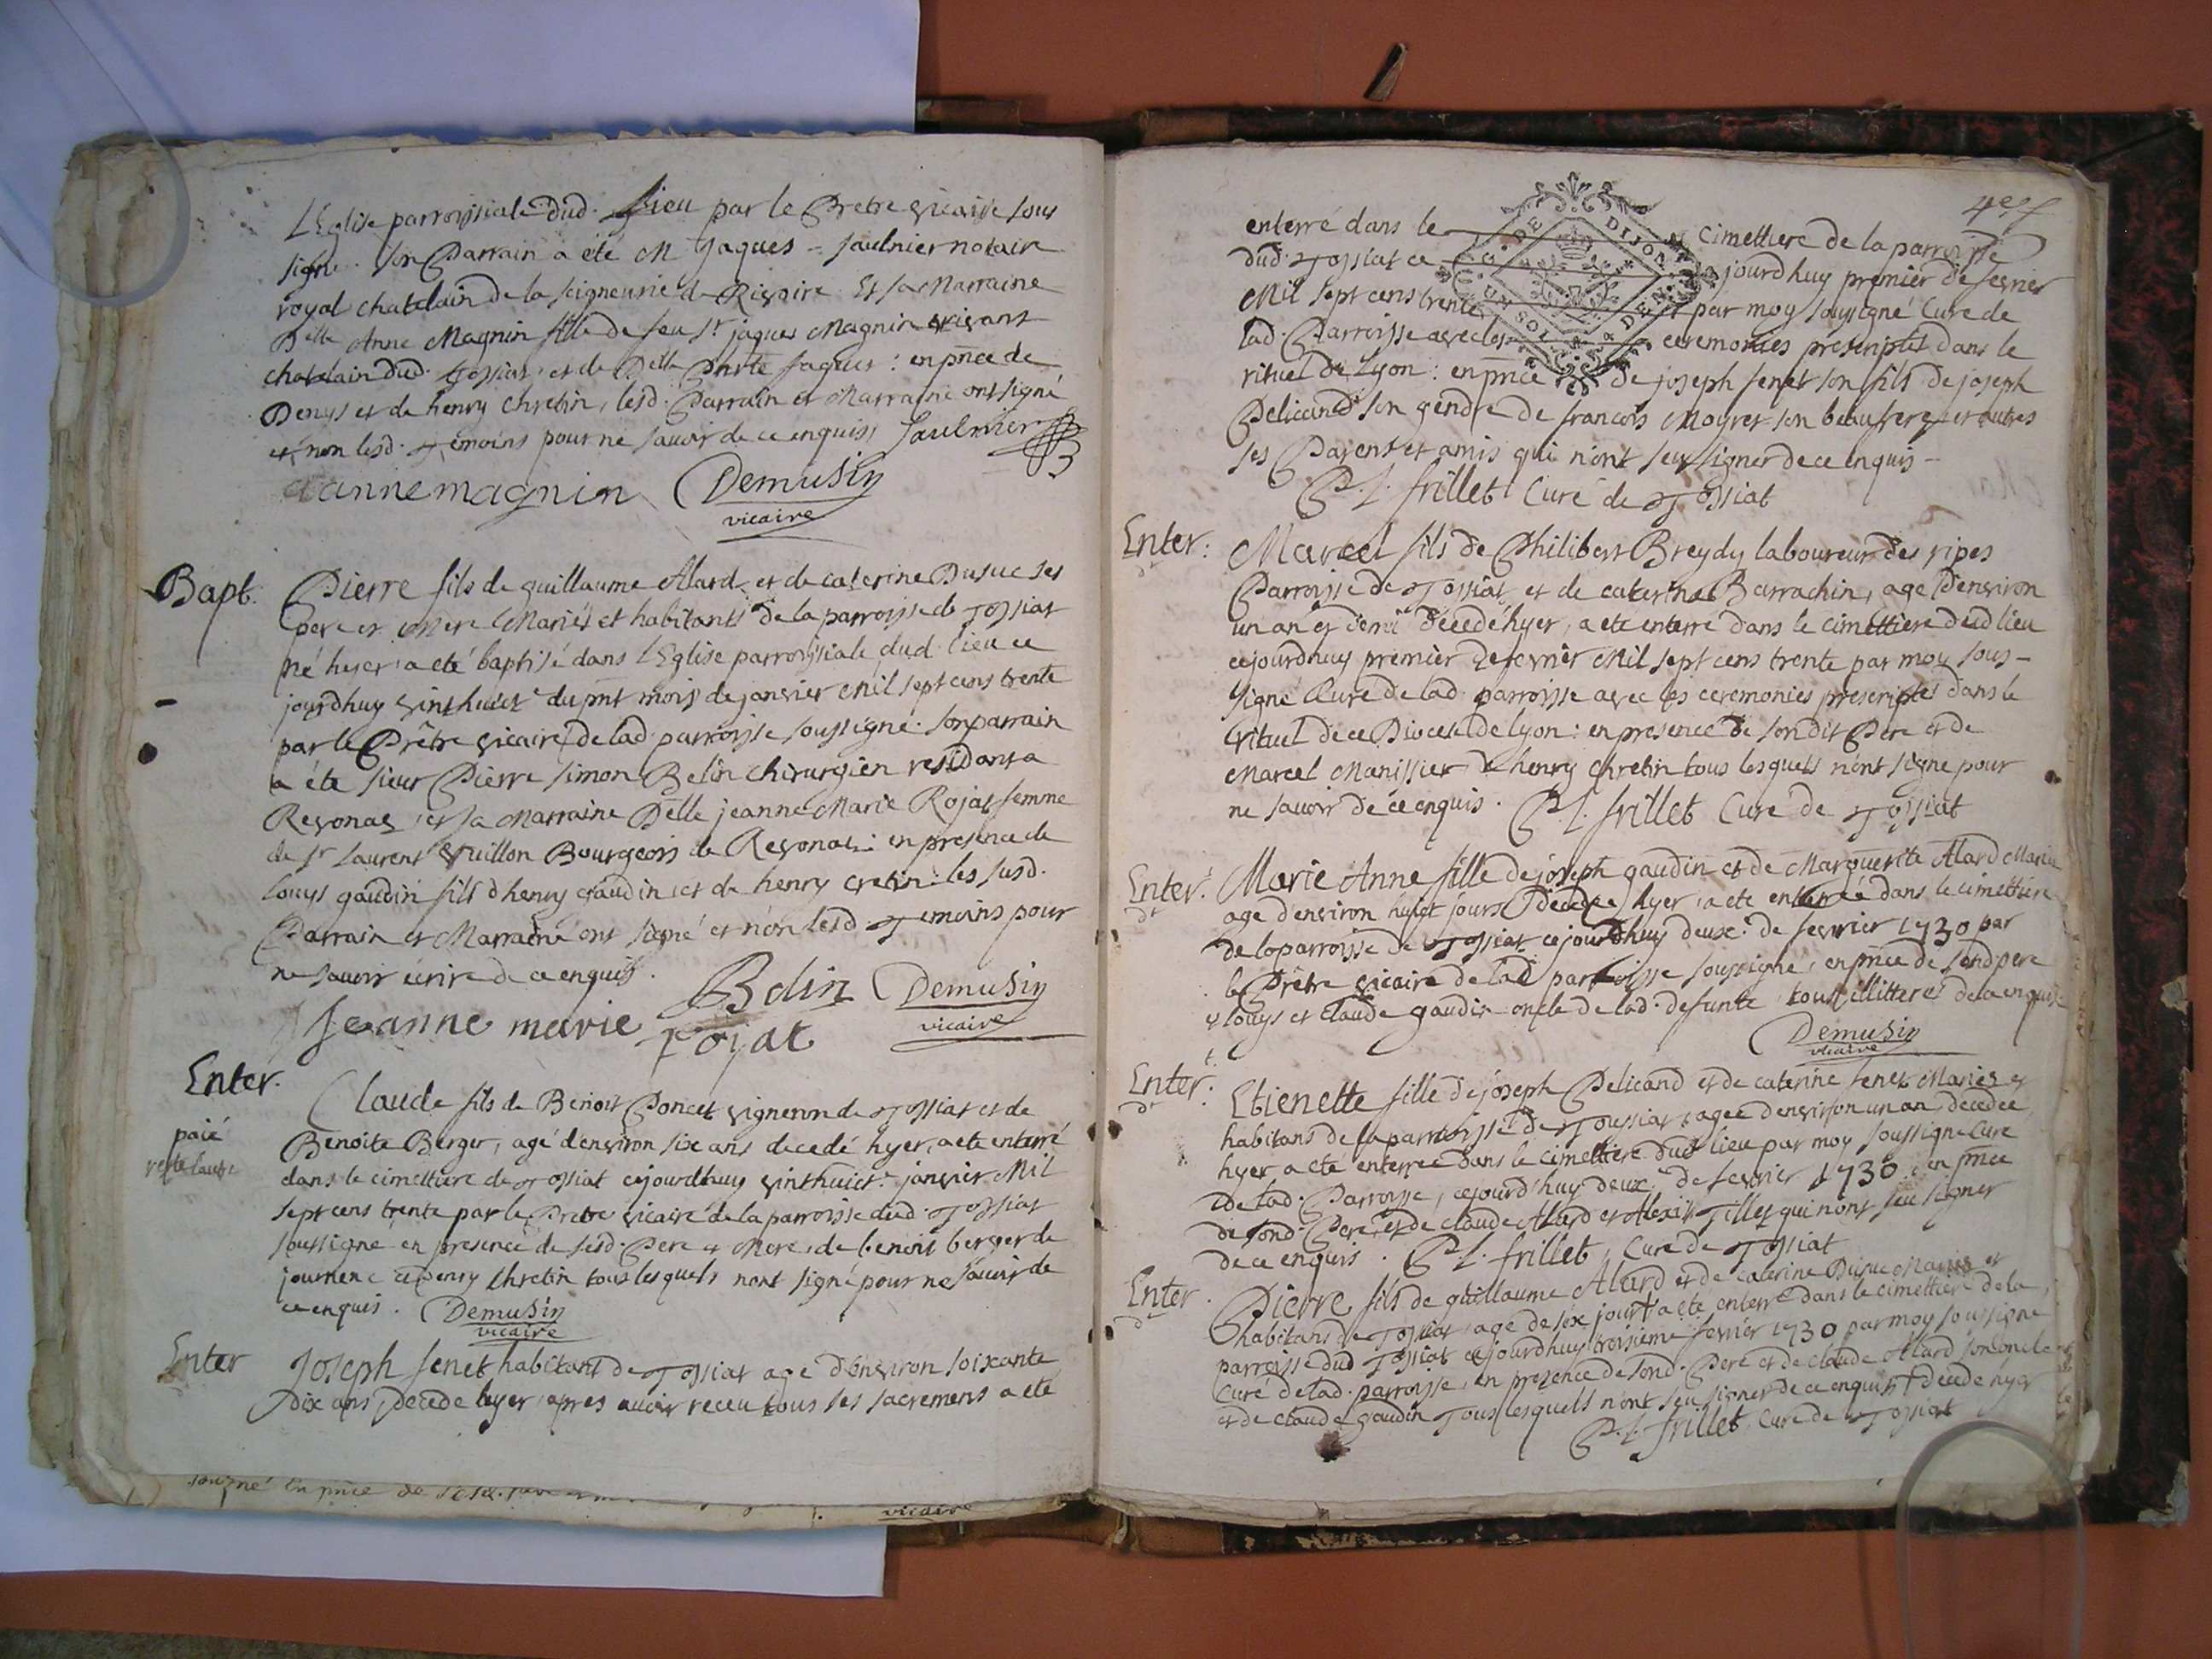 L'Eglise parroissiale dud. Lieu par le Prêtre vicaire sous
signé. son Parrain a été M Jaques Saulnier notaire
royal chatelain de la seigneurie de Rivoire Et sa Marraine
Delle Anne Magnin fille de feu Sr jaques Magnin vivant
chatelain dud. Tossiat et de Delle jaques : en pnce de
Denys et de henry chretin, lesd. Parrain et Marraine ont signé
et non lesd. Temoins pour ne savoir de ce enquis, Saulnier
anne magnin Demusin
vicaire
Bapt. Pierre fils de guillaume Alard et de caterine Dusuc ses
pere et mere Mariés et habitants de la parroisse de Tossiat
né hyer a eté baptisé dans l'Eglise parroissiale dud. lieu ce
jourdhuy vint huict du pnt mois de janvier Mil sept cens trente
par le Prêtre vicaire de lad. parroisse soussigné. son parrain
a été sieur Pierre simon Belin chirurgien residant a
Revonas, et sa Marraine Delle jeanne Marie Rojat femme
de Sr Laurent Vuillon Bourgeois de Revonas : en presence de
Louys gaudin fils d'henry gaudin et de henry cretin : les susd.
Parrain et Marraine ont signé et non lesd. Temoins pour
ne savoir écrire de ce enquis.
Belin Demusin
Jeanne marie rojat vicaire
Enter. Claude fils de Benoit Poncet vigneron de Tossiat et de
paié
Benoite Berger, agé d'environ six ans decedé hyer, a eté enterré
dans le cimettiere de Tossiat cejourdhuy vinthuict janvier Mil
sept cens trente par le Prêtre vicaire de la parroisse dud. Tossiat
soussigné en presence de sesd. Pere et Mere, de benoit berger de
journenc et henry chretin tous lesquels n'ont signé pour ne savoir de
ce enquis. Demusin
vicaire
Enter Joseph Senet habitant de Tossiat agé d'environ soixante
dix ans, decedé hyer apres avoir receu tous ses sacremens a eté
signé En pnce de
vicaire
enterré dans le cimettiere de la parroisse
dud. Tossiat ce jourdhuy premier de fevrier
Mil sept cens trente par moy soussigné Curé de
lad. Parroisse avec les ceremonies prescriptes dans le
rituel de Lyon : en pnce de joseph senet son fils de joseph
Pelicand son gendre de francois Moyret son beaufrere et autres
ses Parens et amis qui n'ont seu signer de ce enquis
P. L. frillet Curé de Tossiat
DE DIJON
Enter: Marcel fils de Philibert Breydy laboureur des ripes
Parroisse de Tossiat et de caterine Barrachin, agé d'environ
un an et demi decedé hyer, a eté enterré dans le cimettiere dud lieu
cejourdhuy premier de fevrier Mil sept cens trente par moy sous-
signé Curé de lad parroisse avec les ceremonies prescriptes dans le
rituel de ce Diocese de lyon : en presence de sondit Pere et de
Marcel Manissier d'henry chretin tous lesquels n'ont signé pour
ne savoir de ce enquis. P. L. frillet Curé de Tossiat
Enter. Marie Anne fille de joseph gaudin et de Marguerite Alard Mariés
age d'environ huict jours Decedee hyer a eté enterrée dans le cimettiere
de la parroisse de Tossiat cejourdhuy deux: de fevrier 1730 par
le Prêtre vicaire de lad parroisse soussigné, en pnce de sond pere
et louys et claude gaudin oncle de lad. defunte tous illitteres de ce enquis
Demusin
vicaire
Enter: Etienette fille de joseph Pelicand et de caterine senet Mariés et
habitans de la parroisse de Toussiat, agee d'environ un an, decedee
hyer a eté enterree dans le cimettiere dud lieu par moy soussigné Curé
de lad. Parroisse, cejourd'huy deux: de fevrier 1730 : en pnce
de sond. Pere, et de claude Alard et Alexis Tillet qui n'ont seu signer
de ce enquis. P. L. frillet, Curé de Tossiat
Enter. Pierre fils de guillaume Alard et de caterine Dusuc Mariés et
habitans de Tossiat agé de six jours + a eté enterré dans le cimettiere de la
parroisse dud Tossiat cejourdhuy troisieme fevrier 1730 par moy soussigné
Curé de lad. parroisse, en presence de sond. Pere et de claude Alard son oncle
et de claude gaudin Tous lesquels n'ont seu signer de ce enquis + decedé hyer
P. L. frillet Curé de Tossiat